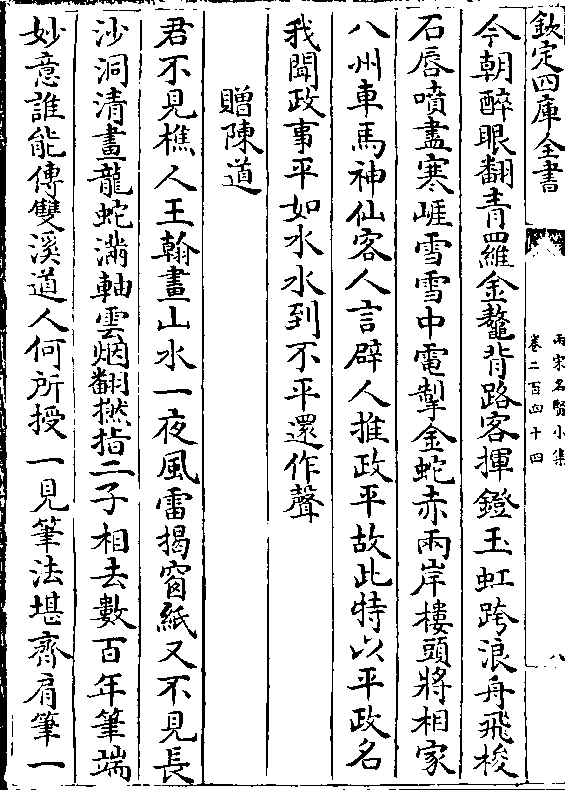 欽定四庫全書
兩宋名賢小集
卷二百四十四
八
今朝醉眼翻青羅金鼇背路客揮鐙玉虹跨浪舟飛梭
石唇噴盡寒崕雪雪中電掣金蛇赤兩岸樓頭將相家
八州車馬神仙客人言辟人推政平故此特以平政名
我聞政事平如水水到不平還作聲
贈陳道
君不見樵人王翰畫山水一夜風雷揭窗紙又不見長
沙洞清畫龍蛇滿軸雲烟翻撚指二子相去數百年筆端
妙意誰能傳雙溪道人何所授一見筆法堪齊肩筆一